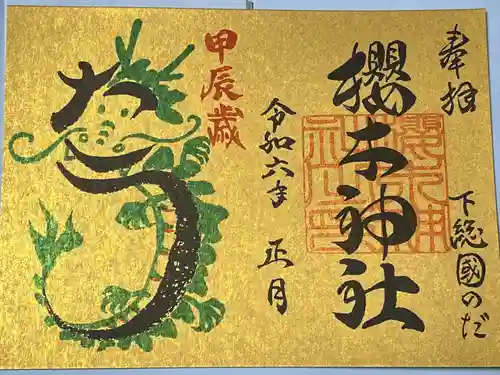 奉拝
下総國のだ
櫻木神社
令和六年
正月
甲辰歳
たつ